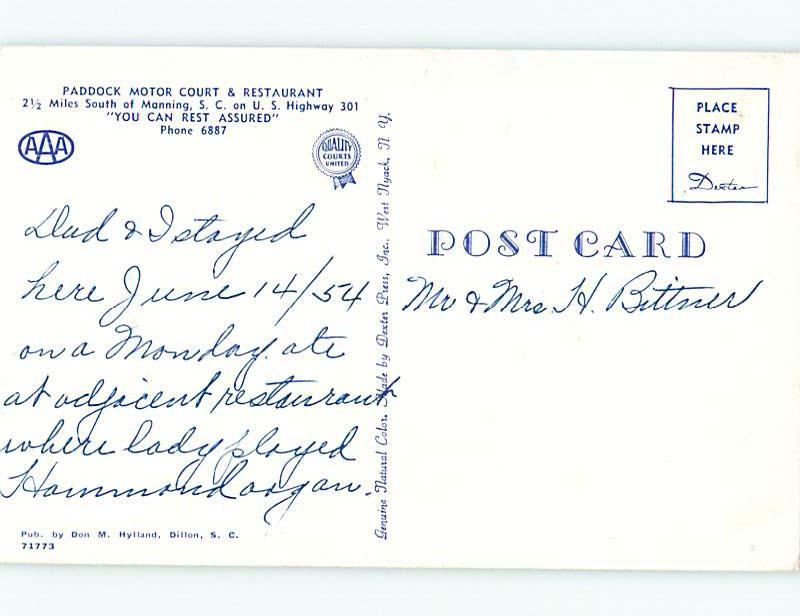 PADDOCK MOTOR COURT & RESTAURANT
2½ Miles South of Manning, S. C. on U. S. Highway 301
"YOU CAN REST ASSURED"
Phone 6887
AAA
QUALITY
COURTS
UNITED
Dad & I stayed
here June 14/54
on a Monday. ate
at adjacent restaurant
where lady played
Hammond organ.
Pub. by Don M. Hylland, Dillon, S. C.
71773
Genuine Natural Color. Made by Dexter Press, Inc., West Nyack, N. Y.
PLACE
STAMP
HERE
Dexter
POST CARD
Mr & Mrs H. Bittner